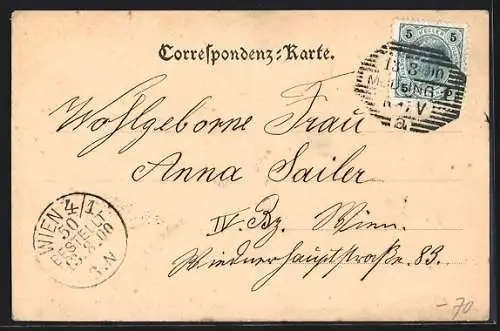 Correspondenz-Karte.
5 5
13 3 00
MÖDLING
Wohlgeborne Frau
Anna Sailer
IV. Bz. Wien.
Wiednerhauptstraße 83.
WIEN 4/1
BESTELLT
-70